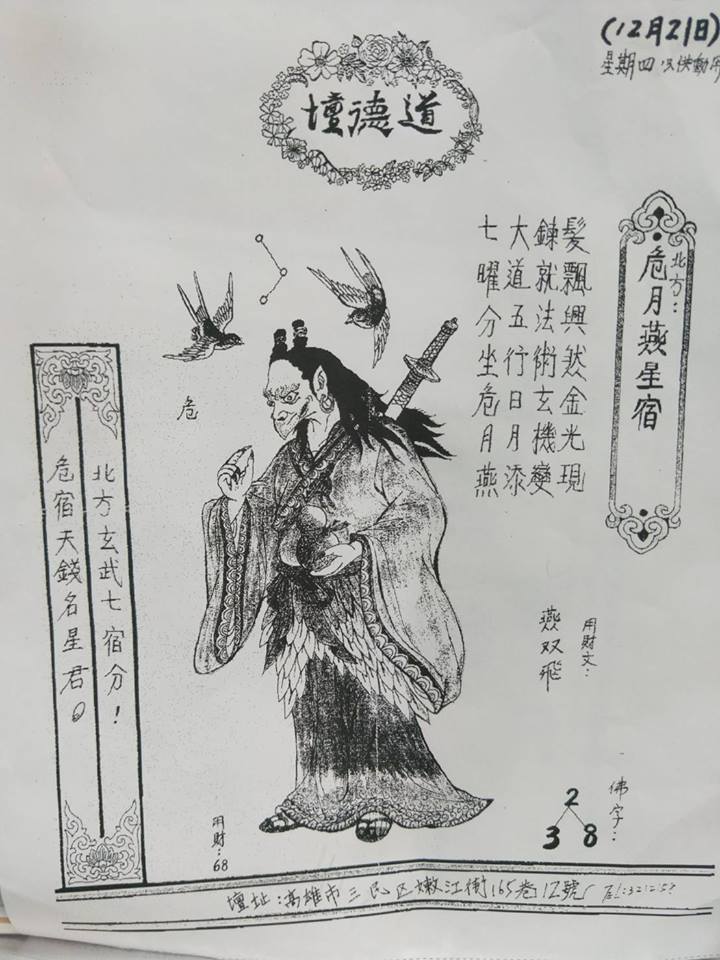 (12月21日)
星期四
道德壇
北方:
危月燕星宿
髮飄興然金光現
鍊就法術玄機變
大道五行日月添
七曜分坐危月燕
危
北方玄武七宿分!
危宿天錢名星君。
用財文:
燕双飛
佛字:
2
3 8
用財:68
壇址:高雄市三民区嫩江街165巷12號